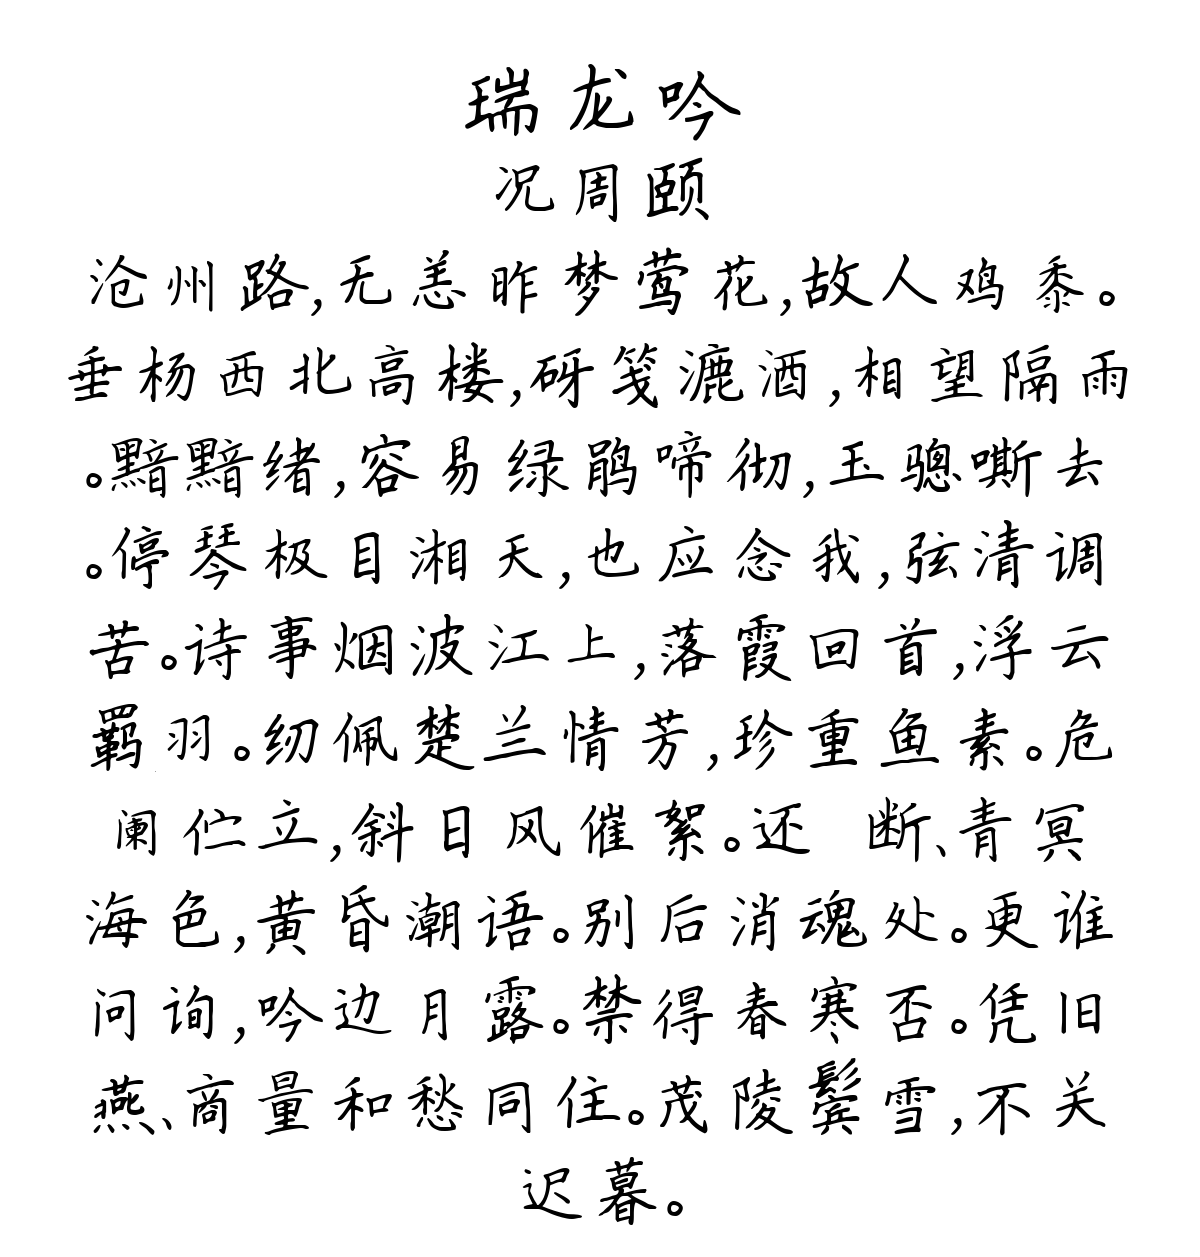 瑞龙吟
况周颐
沧州路,无恙昨梦莺花,故人鸡黍。
垂杨西北高楼,砑笺漉酒,相望隔雨
。黯黯绪,容易绿鹃啼彻,玉骢嘶去
。停琴极目湘天,也应念我,弦清调
苦。诗事烟波江上,落霞回首,浮云
羁羽。纫佩楚兰情芳,珍重鱼素。危
阑伫立,斜日风催絮。还 断、青冥
海色,黄昏潮语。别后消魂处。更谁
问询,吟边月露。禁得春寒否。凭旧
燕、商量和愁同住。茂陵鬓雪,不关
迟暮。